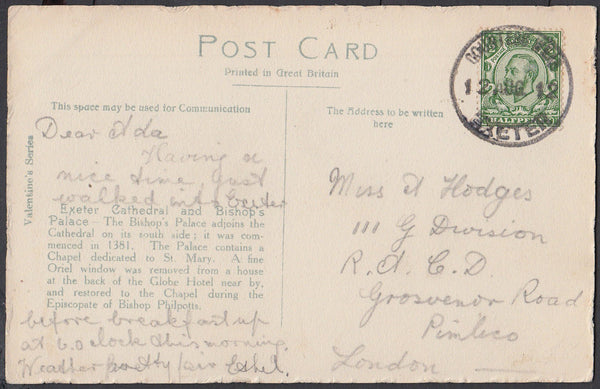 POST CARD
Printed in Great Britain
This space may be used for Communication
The Address to be written
here
Valentine's Series
Dear Ada
Having a
nice time just
walked into Exeter
Exeter Cathedral and Bishop's
Palace — The Bishop's Palace adjoins the
Cathedral on its south side; it was com-
menced in 1381. The Palace contains a
Chapel dedicated to St. Mary. A fine
Oriel window was removed from a house
at the back of the Globe Hotel near by,
and restored to the Chapel during the
Episcopate of Bishop Philpotts.
before breakfast up
at 6.oclock this morning.
Weather pretty fair Ethel.
Miss A Hodges
111 G Division
R.A.C.D.
Grosvenor Road
Pimlico
London
12 AUG 12
EXETER
HALFPENNY